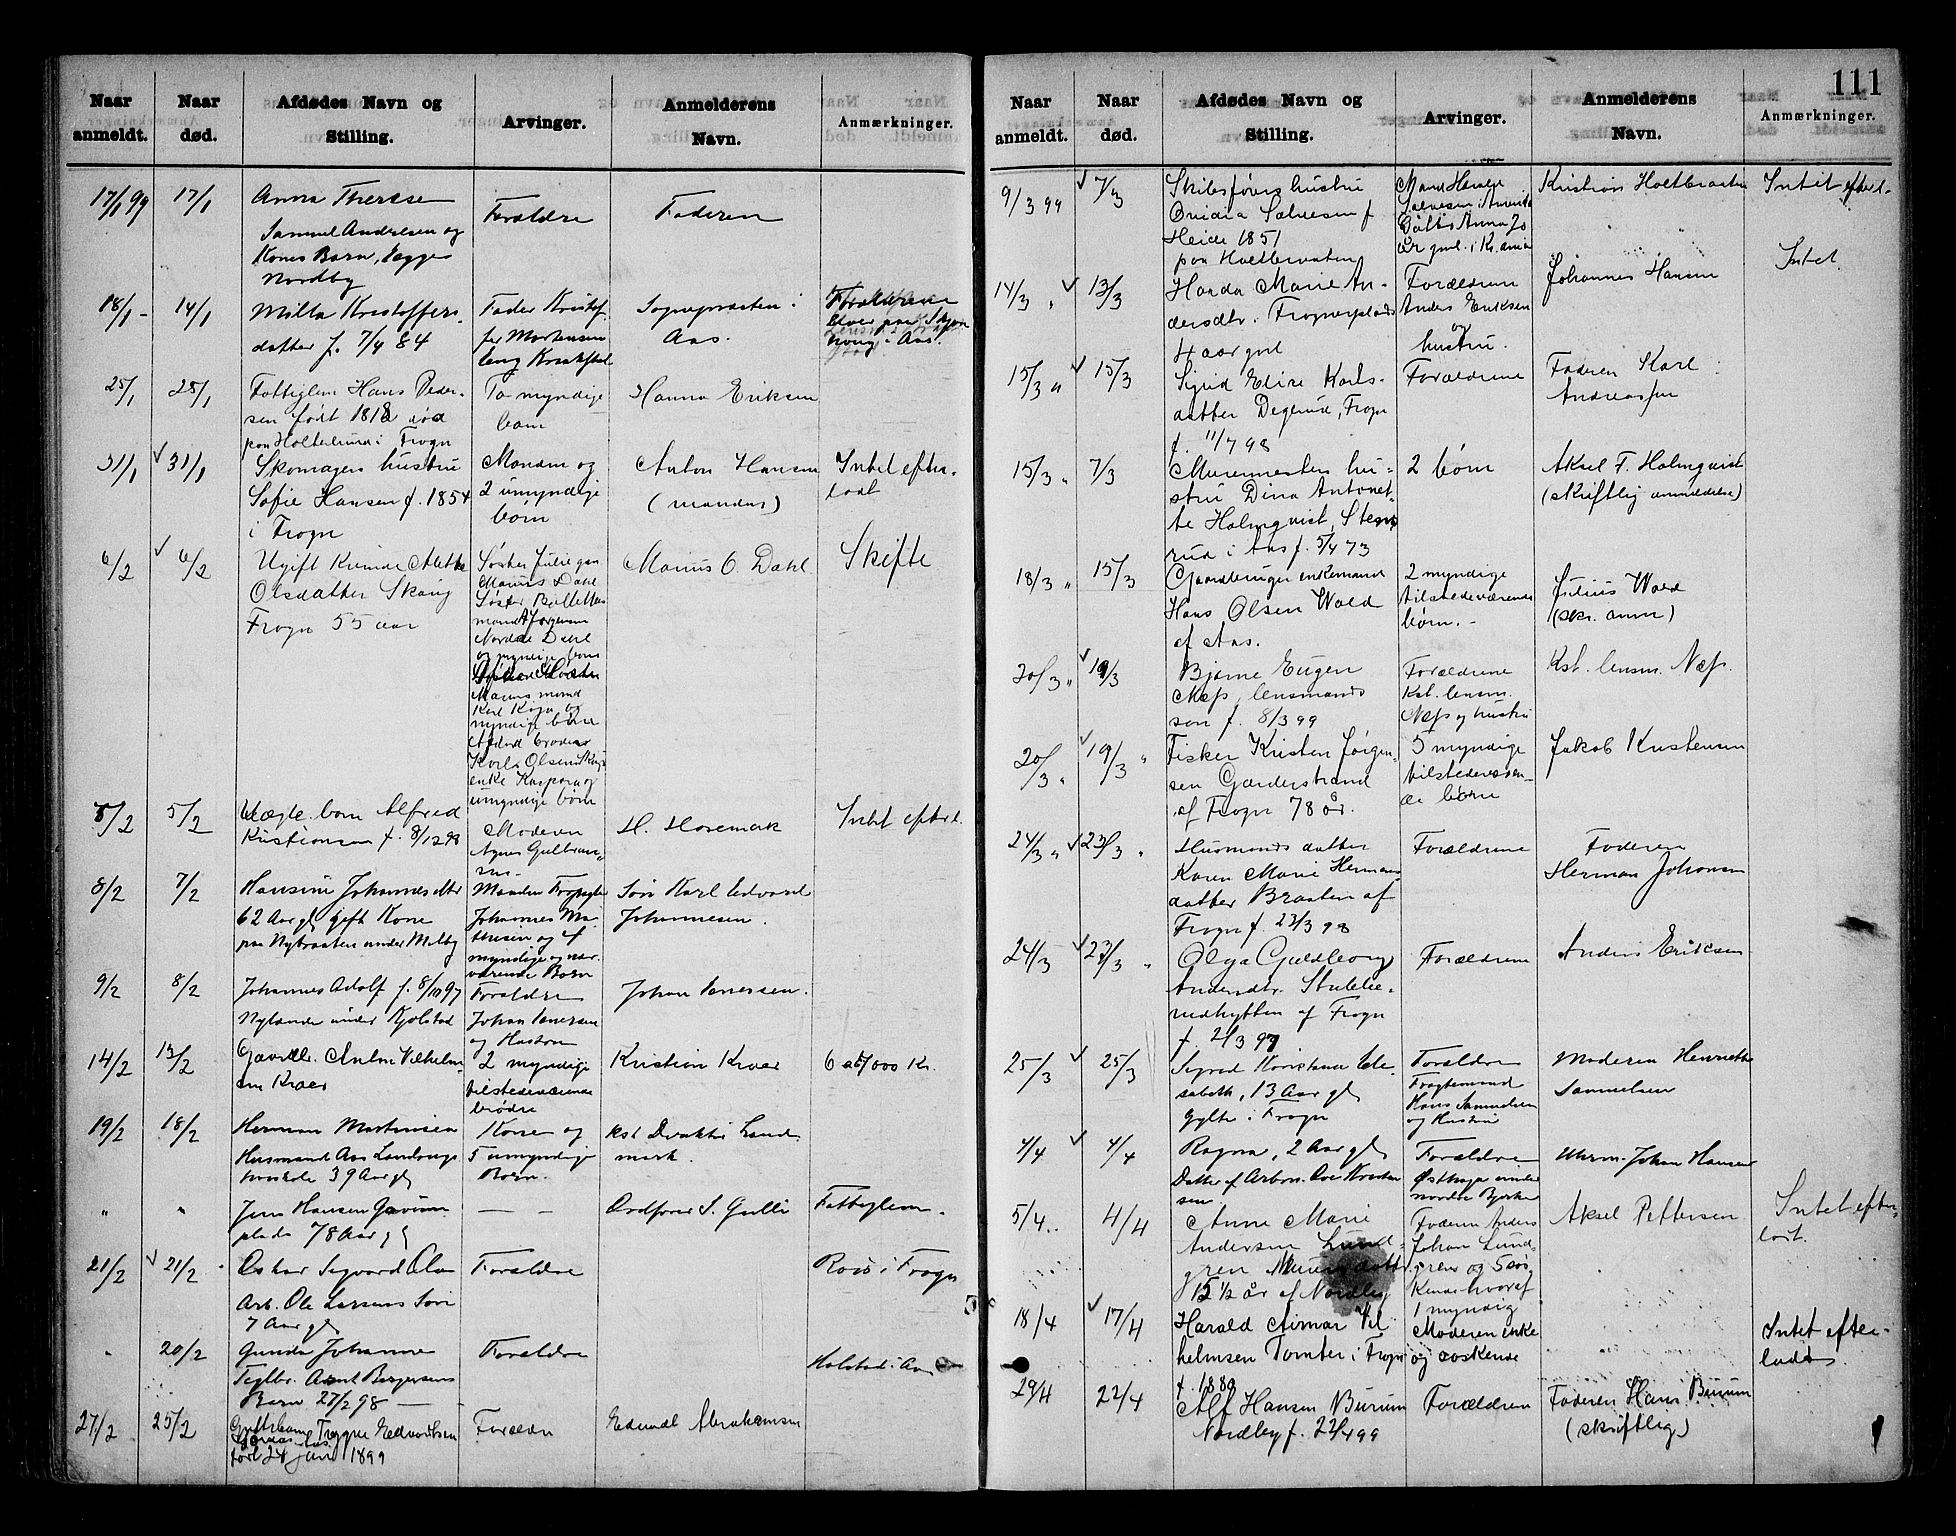 111
Naar anmeldt.
Naar død.
Afdødes Navn og Stilling.
Arvinger.
Anmelderens Navn.
Anmærkninger.
17/1 99 17/1
Anna Therese
Samuel Andresen og
Kones Barn, Vegge
Nordby
Forældre
Faderen
18/1 - 14/1
Milla Kristoffers-
datter f. 7/4 84
Fader Kristof-
fer Mortensen
Sognepræsten i
Aas.
Forældrene
i Aas.
25/1 25/1
Fattiglem Hans Peder-
sen født 1818 død
paa Holterlund i Frogn
To myndige
barn
Hanna Eriksen
31/1 31/1
Skomagers hustru
Sofie Hansen f. 1854
i Frogn
Manden og
2 umyndige
børn
Anton Hansen
(manden)
Intet efter-
ladt
6/2 6/2
Ugift Kvinde Alethe
Olsdatter Skaug
Frogn 55 aar
Søster Julie
Marius Dahl
Søster
Dahl
og myndige børn
myndige børn
Karl Olsen
enke Kaspara og
umyndige børn
Marius O. Dahl
Skifte
8/2 5/2
Uægte barn Alfred
Kristiansen f. 8/12 98
Moderen
Agnes Gulbran-
sen.
H. Horemark
Intet efterl.
8/2 7/2
Hansine Johannesdtr
62 Aar gl gift Kone
paa Nybraaten under Melby
Manden
Johannes Ma-
thisen og 4
myndige og nær-
værende Børn
Søn Karl Edvard
Johannesen.
9/2 8/2
Johannes Adolf f. 8/10 97
Nylænde under Kjølstad
Forældre
Johan Iversen
og Hustru
Johan Iversen.
14/2 13/2
Gaardbr. Anton Vilhelm-
sen Kroer
2 myndige
tilstedeværende
brødre
Kristian Kroer
6 a 7000 Kr.
19/2 18/2
Herman Martinsen
Husmand Aas Landbrugs
høiskole 39 Aar gl
Kone og
5 umyndige
Børn.
Kst Direktør Land-
mark.
" "
Jens Hansen
plads 78 Aar gl
— —
Ordfører S. Gulli
Fattiglem.
21/2 21/2
Oskar Sigvard Olsen
Arb. Ole Larsens Søn
7 Aar gl
Forældre
Raus i Frogn
" 20/2
Gunda Johanne
Teglbr. Arnt Bergersens
Barn 27/2 98 —
Forældre
Holstad i Aas
27/2 25/2
Trygve Edvardsen
født 24 juni 1899
Forældre
Edvard Abrahamsen
Naar anmeldt.
Naar død.
Afdødes Navn og Stilling.
Arvinger.
Anmelderens Navn.
Anmærkninger.
9/3 99 7/3
Skibsførers hustru
Ovidia Salvesen f
Heide 1851
paa Holtbraaten
Mand
Salvesen i Amerika
Datter Anna 20
Aar gml. i Kr.ania
Kristian Holtbraaten
Intet efterl.
14/3 " 13/3
Handa Marie An-
dersdtr. Frognerplads
4 aar gml
Forældrene
Anders Eriksen
og
hustru.
Johannes Hansen
Intet.
15/3 " 15/3
Sigrid Elise Karls-
datter Degerud, Frogn
f. 11/7 98
Forældrene
Faderen Karl
Andreassen
15/3 " 7/3
Murermesters hu-
stru Dina Antonet-
te Holmqvist, Sten-
rud i Aas f. 5/4 73
2 børn
Aksel F. Holmqvist
(skriftlig anmeldelse)
18/3 " 15/3
Gaardbruger enkemand
Hans Olsen Wold
af Aas.
2 myndige
tilstedeværende
børn. -
Julius Wold
(skr. anm)
20/3 " 19/3
Bjarne Eugen
Næss, lensmands
søn f. 8/3 99
Forældrene
Kst. lensm.
Næss og hustru
Kst. lensm. Næss.
20/3 " 19/3 "
Fisker Kristen Jørgen-
sen Gjarderstrand
af Frogn 78 år.
5 myndige
tilstedeværen-
de børn
Jakob Kristensen
24/3 " 23/3 "
Husmands datter
Karen Marie Hermans-
datter Braaten af
Frogn f. 23/3 98
Forældrene
Faderen
Herman Johansen
24/3 23/3 "
Olga Guldborg
Andersdtr. Stubbe-
rudhytten af Frogn
f. 2/3 97
Forældrene
Anders Eriksen
25/3 25/3
Sigrid Kristiana Ele-
sabeth, 13 Aar gl
Gylte i Frogn
Forældre
Fragtemand
Hans Samuelsen
og Hustru
Moderen Henriette
Samuelsen
4/4 4/4
Ragna, 2 Aar gl
Datter af Arbm. Ove Kristian-
sen.
Forældre
Østhagen under
nordre Bjerke
Uhrm. Johan Hansen
5/4 .. 4/4
Anne Marie
Andersen Lund-
gren Murersdatter
15 1/2 år af Nordby
Faderen Anders
Johan Lund-
gren og 5 søs-
kende hvoraf
1 myndig
Aksel Pettersen
Intet efter-
ladt.
18/4 17/4
Harald Asmar Vil-
helmsen Tomter i Frogn
f. 1880
Moderen enke
og søskende
Intet efter-
ladt.
29/4 22/4
Alf Hansen Burum
Nordby f. 22/4 99
Forældren
Faderen Hans Burum
(skriftlig)